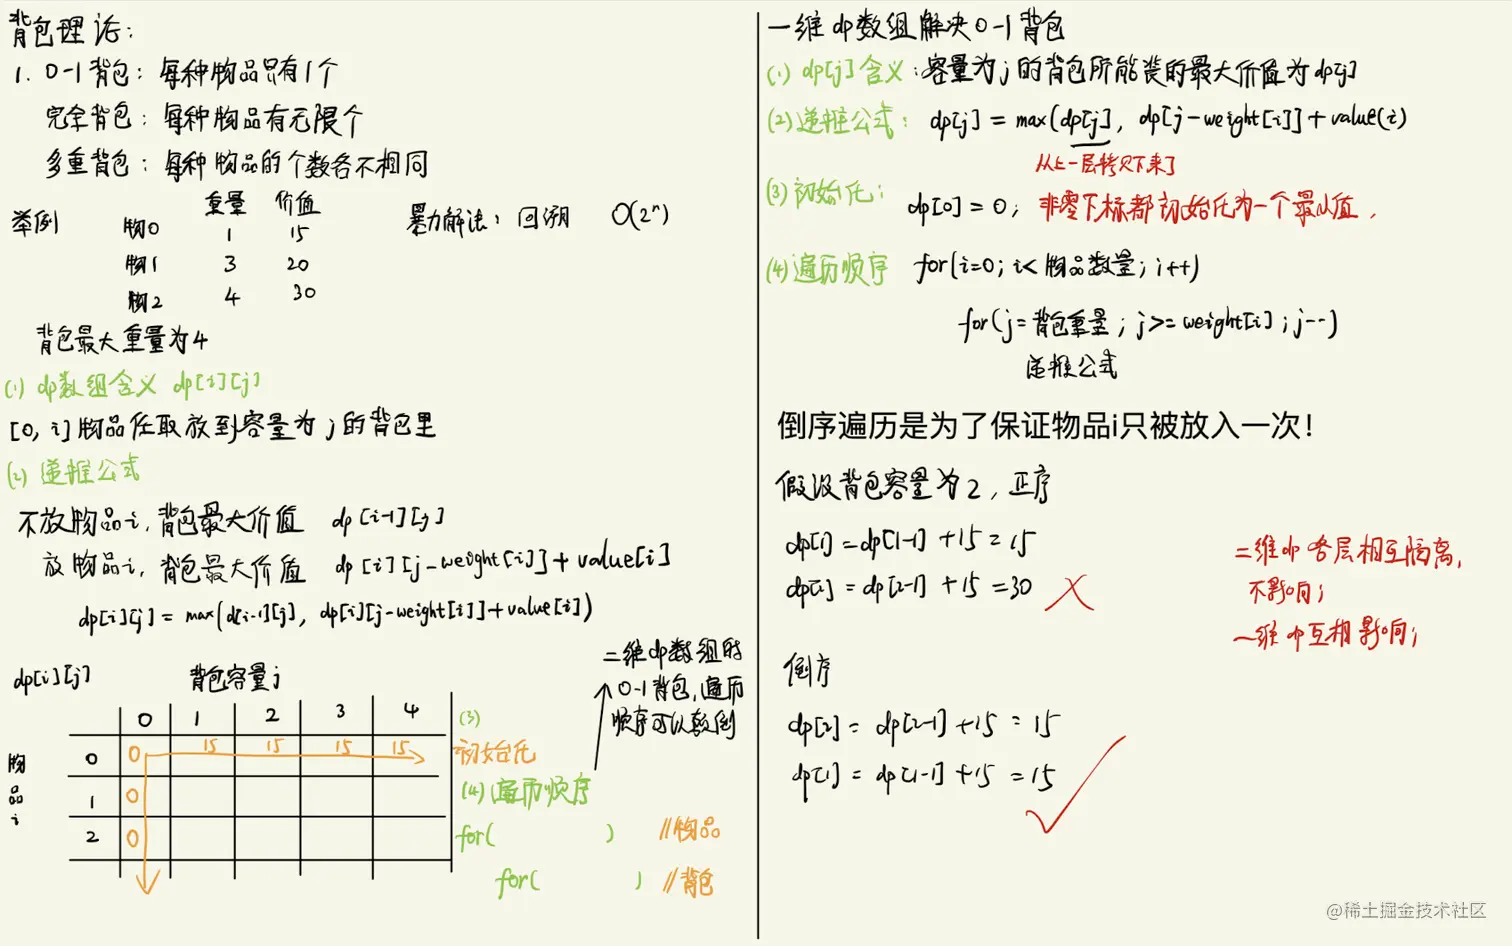 背包理论:
1. 0-1背包: 每种物品只有1个
完全背包: 每种物品有无限个
多重背包: 每种物品的个数各不相同
重量 价值
举例 物0 1 15
暴力解法: 回溯 O(2ⁿ)
物1 3 20
物2 4 30
背包最大重量为4
(1) dp数组含义 dp[i][j]
[0, i]物品任取放到容量为j的背包里
(2) 递推公式
不放物品i, 背包最大价值 dp[i-1][j]
放物品i, 背包最大价值 dp[i][j-weight[i]]+value[i]
dp[i][j] = max(d[i-1][j], dp[i][j-weight[i]]+value[i])
二维dp数组的
0-1背包, 遍历
顺序可以颠倒
dp[i][j] 背包容量j
0 1 2 3 4 (3)
0 0 15 15 15 15 初始化
物品i
1 0 (4) 遍历顺序
2 0 for( ) //物品
for( ) //背包
一维dp数组解决0-1背包
(1) dp[j]含义: 容量为j的背包所能装的最大价值为dp[j]
(2) 递推公式: dp[j] = max(dp[j], dp[j-weight[i]]+value(i)
从上一层拷贝下来了
(3) 初始化: dp[0] = 0; 非零下标都初始化为一个最小值,
(4) 遍历顺序 for(i=0; i<物品数量; i++)
for(j=背包重量; j>=weight[i]; j--)
递推公式
倒序遍历是为了保证物品i只被放入一次!
假设背包容量为2, 正序
dp[1] = dp[1-1] +15 = 15
dp[2] = dp[2-1] +15 = 30
二维dp各层相互隔离,
不影响;
一维dp互相影响;
倒序
dp[2] = dp[2-1] +15 = 15
dp[1] = dp[1-1] +15 = 15
@稀土掘金技术社区